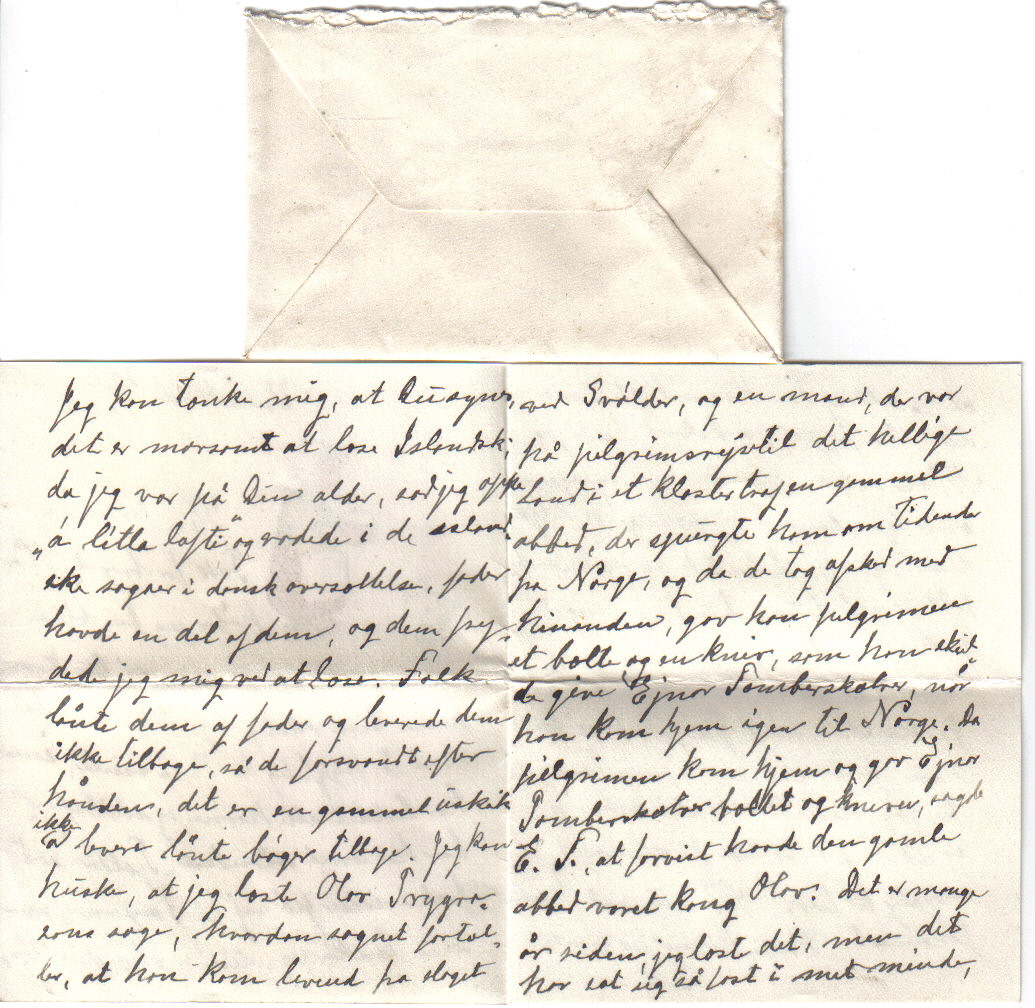 Jeg kan tænke mig, at Du synes,
det er morsomt at læse Islandsk;
da jeg var på Din alder, sad jeg oppe
„á litla lofti" og rodede i de island-
ske sagaer i dansk oversættelse, fader
havde en del af dem, og dem fry-
dede jeg mig ved at læse. Folk
lånte dem af fader og leverede dem
ikke tilbage, så de forsvandt efter
hånden, det er en gammel uskik
ikke
å levere lånte bøger tilbage. Jeg kan
huske, at jeg læste Olav Trygva-
sons saga, hvordan sagnet fortæl-
ler, at han kom levend fra slaget
ved Svólder, og en mand, der var
på pilgrimsrejse til det hellige
Land i et kloster traf en gammel
abbed, der spurgte ham om tidende
fra Norge, og da de tog afsked med
hinanden, gav han pilgrimen
et bælte og en kniv, som han skul-
de give Ejnar Tamberskælver, når
han kom hjem igen til Norge. Da
pilgrimen kom hjem og gav Ejnar
Tamberskælver bæltet og kniven, sagde
E. T., at forvist havde den gamle
abbed været kong Olav. Det er mange
år siden, jeg læste det, men det
har sat sig så fast i mit minde,